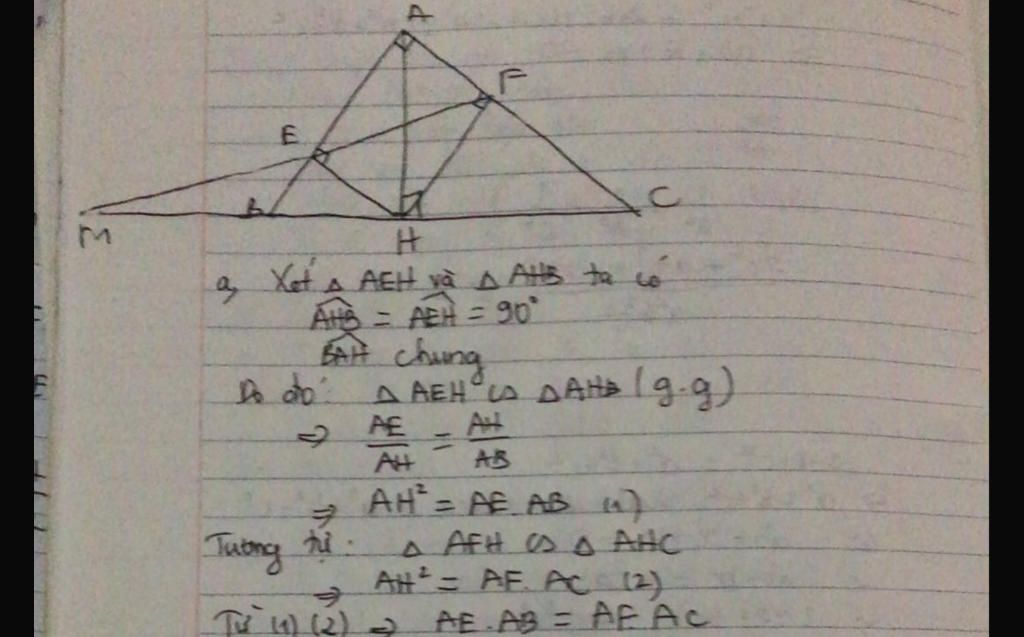 A
F
E
M B H C
a, Xét △ AEH và △ AHB ta có
$\widehat{AHB}$ = $\widehat{AEH}$ = 90°
$\widehat{BAH}$ chung
Do đó: △ AEH ∽ △ AHB (g.g)
⇒ $\frac{AE}{AH} = \frac{AH}{AB}$
⇒ AH² = AE.AB (1)
Tương tự: △ AFH ∽ △ AHC
⇒ AH² = AF.AC (2)
Từ (1) (2) ⇒ AE.AB = AF.AC